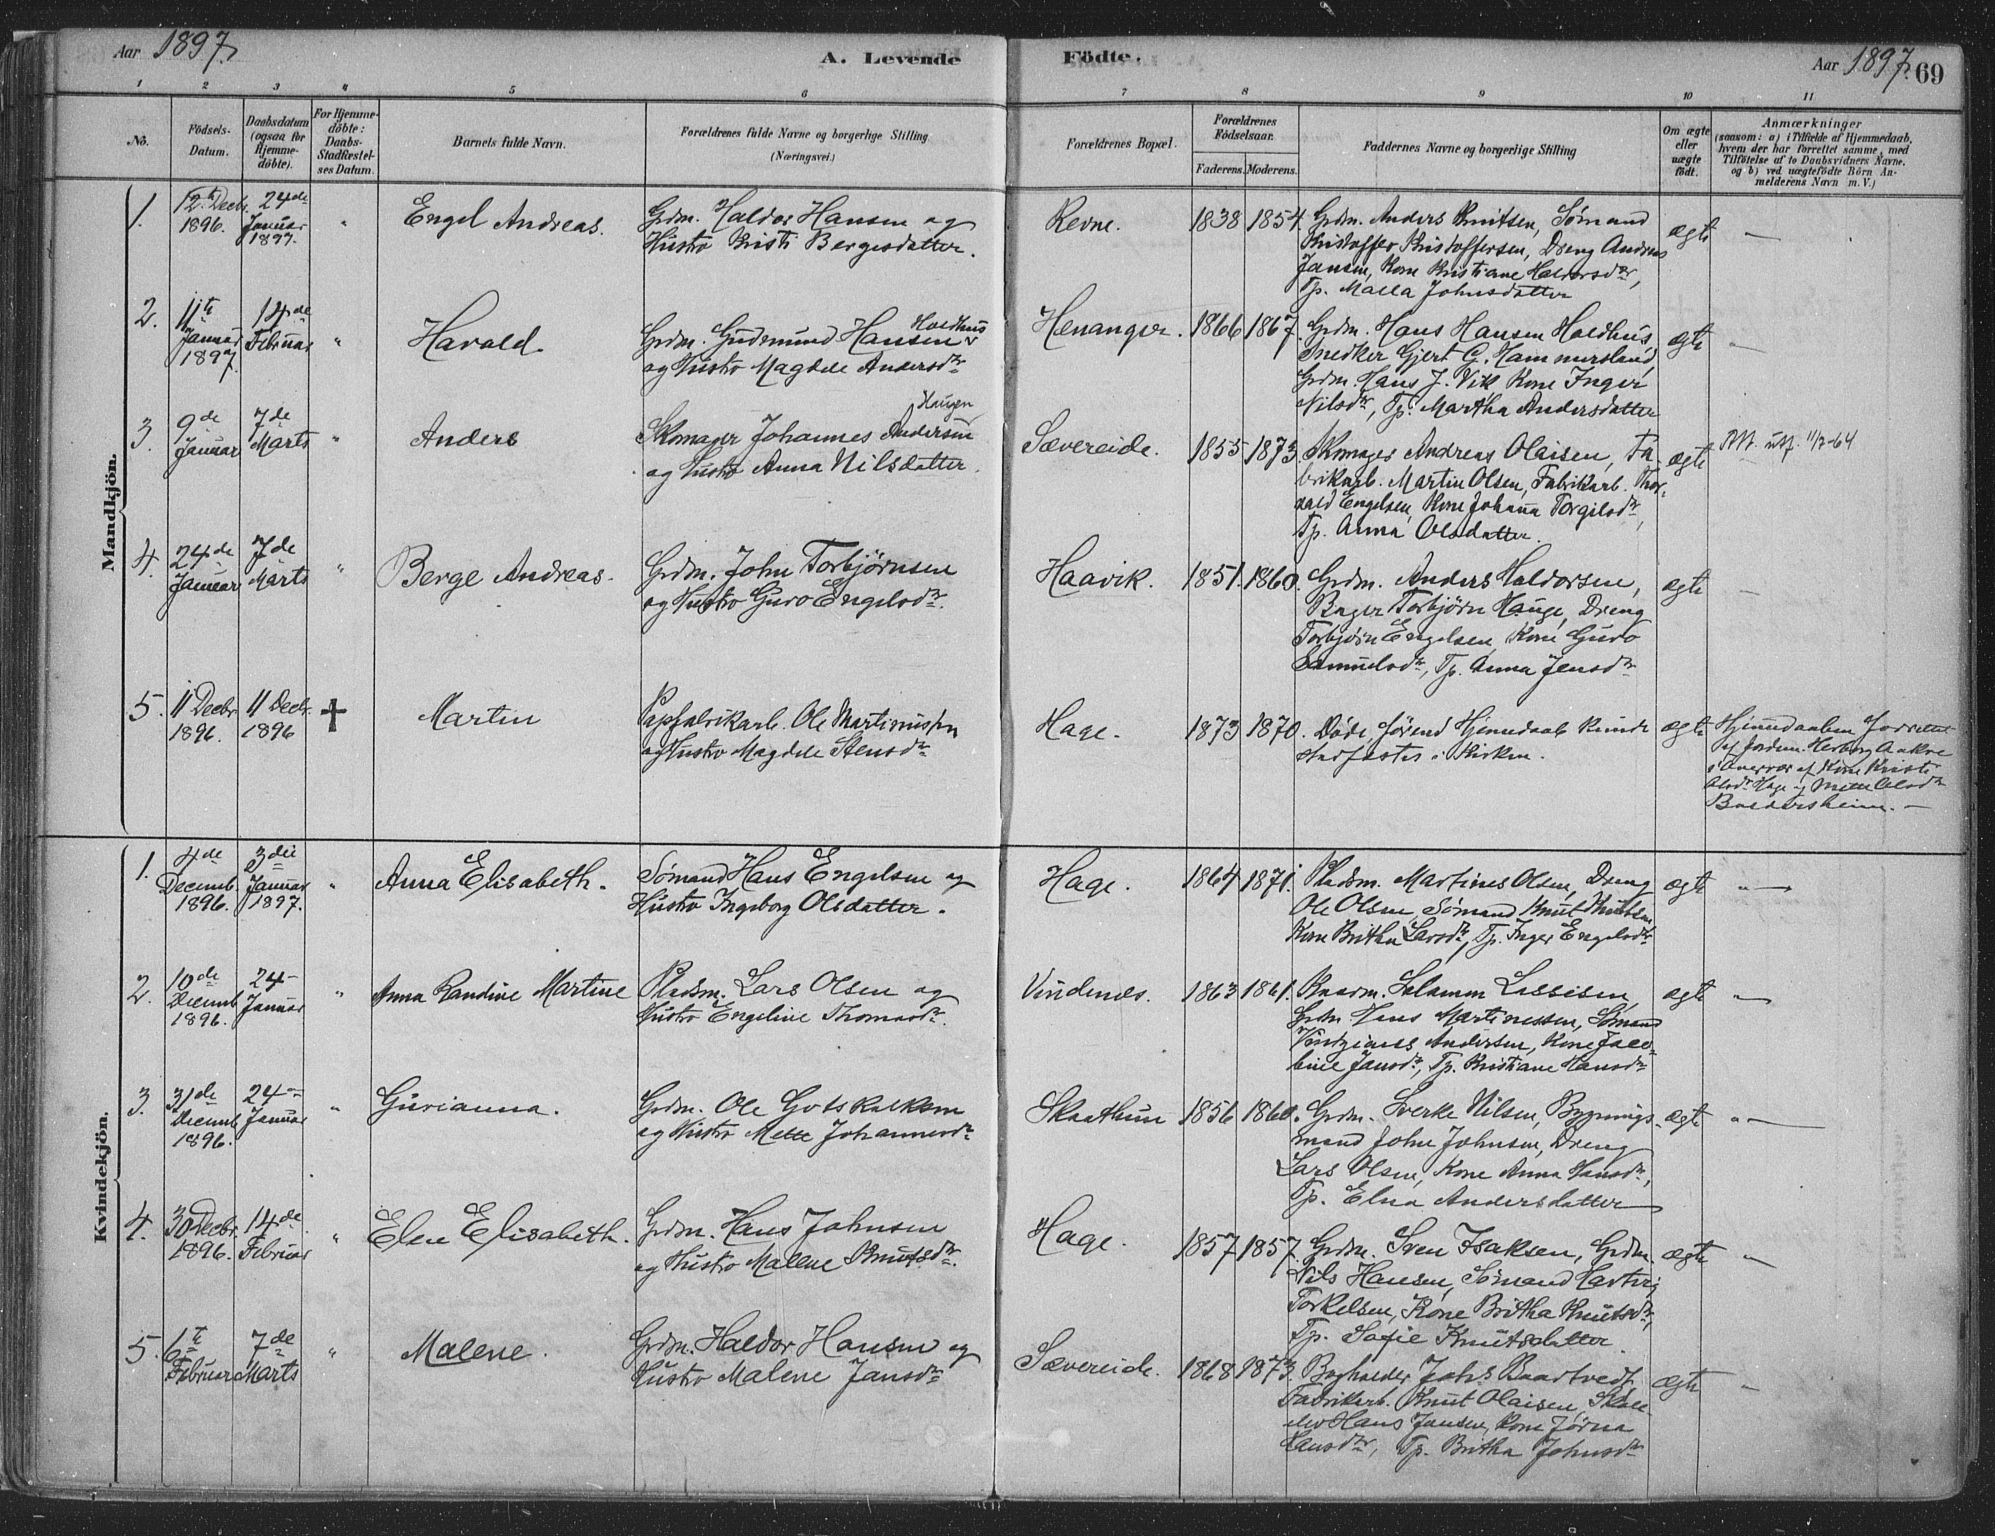 Aar 1897.
A. Levende
Födte.
Aar 1897.
69
1 2 3 4 5 6 7 8 9 10 11
No.
Födsels-
Datum.
Daabsdatum
(ogsaa for
Hjemme-
döbte).
For Hjemme-
döbte:
Daabs-
Stadfæstel-
ses Datum.
Barnets fulde Navn.
Forældrenes fulde Navne og borgerlige Stilling
(Næringsvei.)
Forældrenes Bopæl.
Forældrenes
Födselsaar.
Faderens.
Moderens.
Faddernes Navne og borgerlige Stilling
Om ægte
eller
uægte
födt.
Anmærkninger
(saasom: a) i Tilfælde af Hjemmedaab,
hvem der har forrettet samme, med
Tilföielse af to Daabsvidners Navne,
og b) ved uægtefödte Börn An-
melderens Navn m. V.)
Mandkjön.
1.
12te Decbr.
1896.
24de
Januar
1897.
"
Engel Andreas.
Grdm. Haldor Hansen og
Hustro Kristi Bergesdatter.
Revne.
1838
1854.
Grdm. Anders Knutsen, Sømand
Kristoffer Kristoffersen, Dreng Andreas
Jansen, Kone Kristiane Haldorsdtr,
Tp. Malla Johnsdatter
ægte
—
2.
11te
Januar
1897.
14de
Februar
"
Harald.
Holdhus
Grdm. Gudmund Hansen
og Hustro Magdele Andersdtr
Henanger.
1866
1867.
Grdm. Hans Hansen Holdhus,
Snedker Gjert G. Hammersland,
Grdm. Hans J. Vik Kone Inger
Nilsdtr, Tp. Martha Andersdatter
ægte
—
3.
9de
Januar
7de
Marts
"
Anders
Haugen
Skomager Johannes Andersen
og Hustro Anna Nilsdatter.
Sævereide.
1855
1873.
Skomager Andreas Olaisen, Fa-
brikarb. Martin Olsen, Fabrikarb. Thor-
vald Engelsen, Kone Johanna Torgilsdtr,
Tp. Anna Olsdatter.
ægte
utf. 11/2-64
4.
24de
Januar
7de
Marts
"
Berge Andreas.
Grdm. John Torbjørnsen
og Hustro Guro Engelsdtr.
Haavik.
1851.
1860.
Grdm. Anders Haldorsen,
Bager Torbjørn Hauge, Dreng
Torbjørn Engelsen, Kone Guro
Samuelsdtr, Tp. Anna Jensdtr
ægte
—
5.
11 Decbr.
1896.
11 Decbr.
1896
†
Martin
Papfabrikarb. Ole Martinussen
og Hustro Magdele Stensdtr
Hage.
1873
1870.
Døde førend Hjemmedaab kunde
stadfæstes i Kirken.
ægte
Hjemmedaaben forrettet
af Jordm. Herborg Aakre
i Overvær af Kone Kristi
Olsdtr Hage og Mette Olsdtr
Baldersheim. —
Kvindekjön.
1.
4de
Decemb.
1896.
3die
Januar
1897.
"
Anna Elisabeth.
Sømand Hans Engelsen og
Hustro Ingeborg Olsdatter.
Hage.
1864
1871.
Pladsm. Martines Olsen, Dreng
Ole Olsen, Sømand Knut Knutsen
Kone Britha Larsdtr, Tp. Inger Engelsdtr
ægte
" —
2.
10de
Decemb.
1896.
24 —
Januar
"
Anna Randine Martine
Pladsm. Lars Olsen og
Hustro Engeline Thomasdtr.
Vindenes.
1863
1861.
Salamon Lassesen,
Grdm. Hans Martinessen, Sømand
Andersen, Kone Jaco-
bine Jansdtr, Tp. Kristiane Hansdtr
ægte
" —
3.
31de
Decemb.
1896.
24 —
Januar
"
Gurianna.
Grdm. Ole Gotskalksen
og Hustro Mette Johannesdtr
Skaathun
1856
1860.
Grdm. Sverke Nilsen, Bygnings-
mand John Johnsen, Dreng
Lars Olsen, Kone Anna Hansdtr,
Tp. Elna Andersdatter
ægte
" —
4.
30 Decbr.
1896.
14de
Februar
"
Elen Elisabeth.
Grdm. Hans Johnsen
og Hustro Malene Knutsdtr.
Hage.
1857
1857.
Grdm. Sven Isaksen, Grdm.
Nils Hansen, Sømand Hartvig
Torkelsen, Kone Britha Knutsdtr,
Tp. Sofie Knutsdatter.
ægte
—
5.
6te
Februar
7de
Marts
"
Malene.
Grdm. Haldor Hansen og
Hustro Malene Jansdtr
Sævereide.
1868
1873.
Bogholder Johs Baartvedt,
Fabrikarb. Knut Olaisen, Skole-
elev Hans Jansen, Kone Jørna
Hansdtr, Tp. Britha Johnsdtr
ægte
—